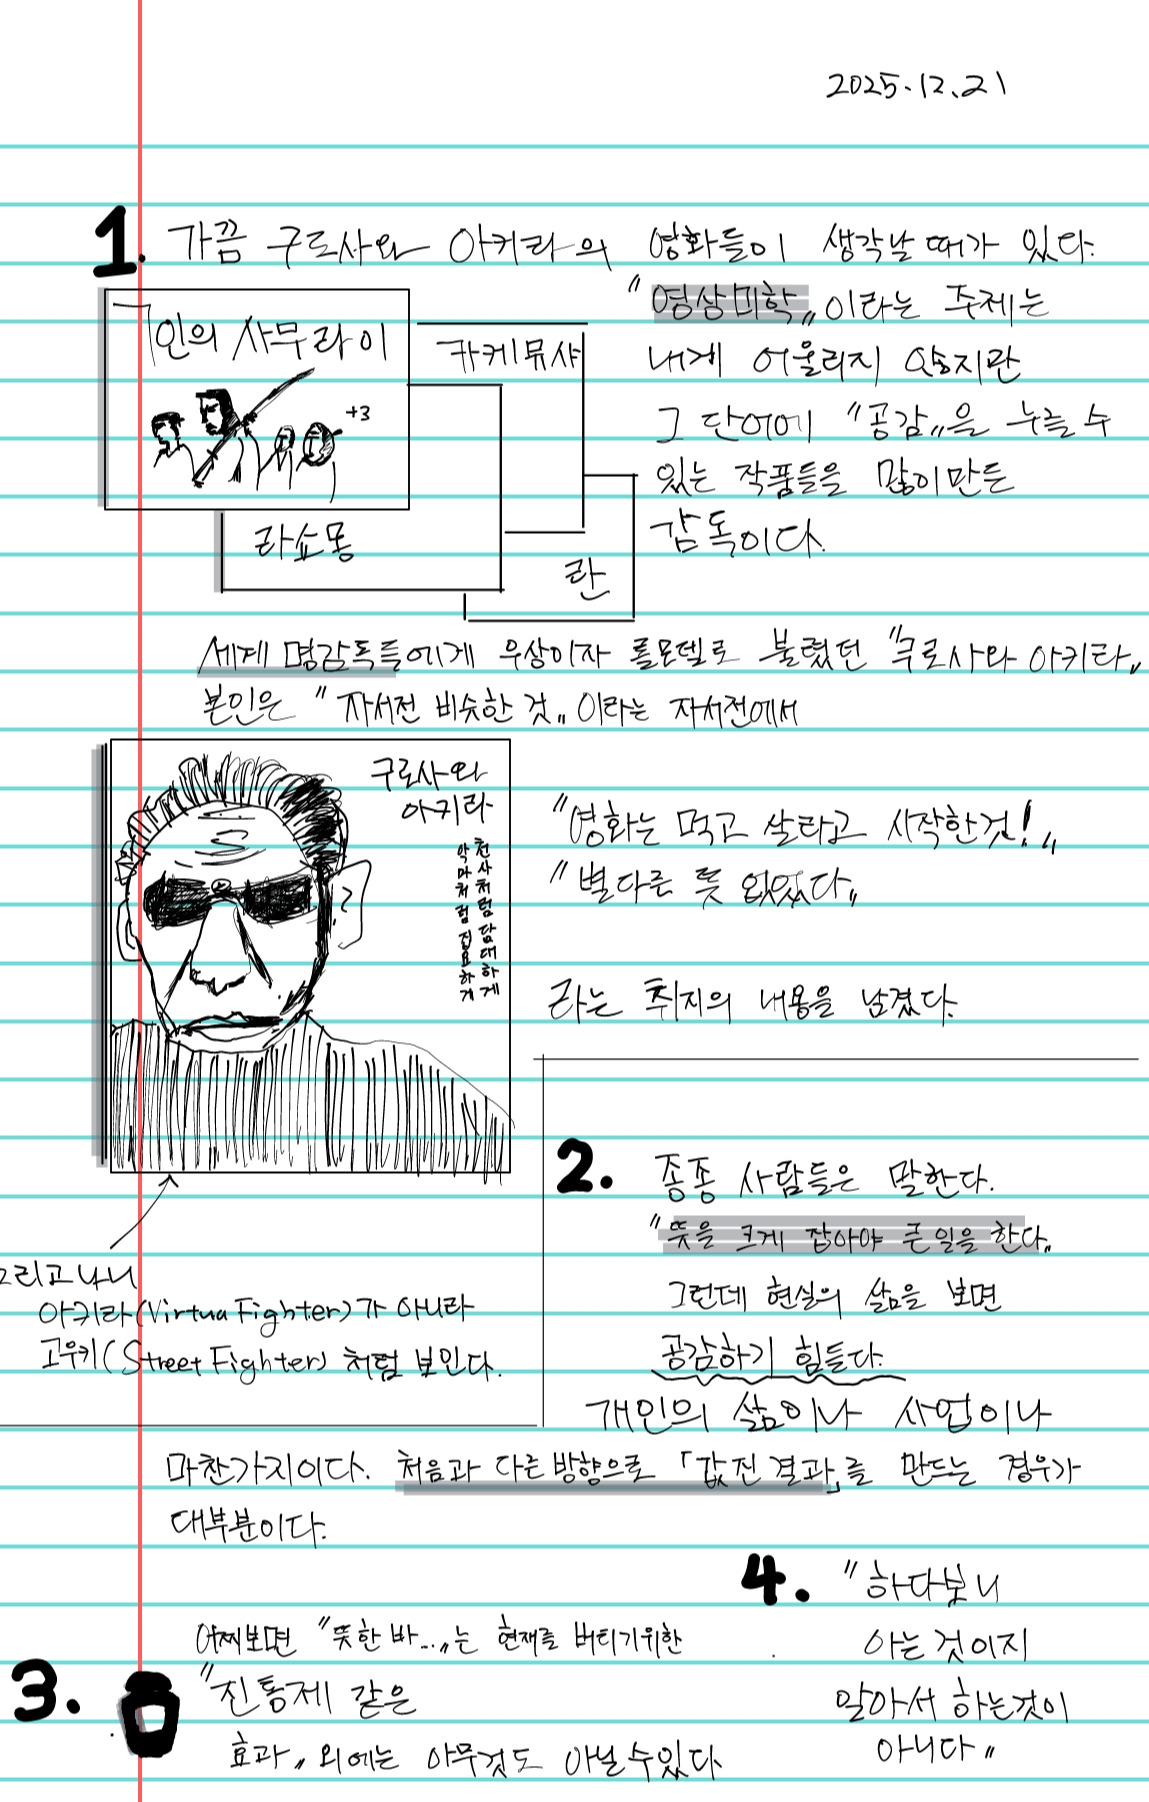 2025.12.21
1. 가끔 구로사와 아키라의 영화들이 생각날 때가 있다.
"영상미학"이라는 주제는
내게 어울리지 않지만
그 단어에 "공감"을 누를 수
있는 작품들을 많이 만든
감독이다.
7인의 사무라이
+3
카케뮤샤
라쇼몽
란
세계 명감독들에게 우상이자 롤모델로 불렸던 "구로사와 아키라"
본인은 "자서전 비슷한 것"이라는 자서전에서
구로사와
아키라
천사처럼 담대하게
악마처럼 집요하게
"영화는 먹고 살라고 시작한것!"
"별다른 뜻 없었다"
라는 취지의 내용을 남겼다.
그리고나니
아키라(Virtua Fighter)가 아니라
고우키(Street Fighter)처럼 보인다.
2. 종종 사람들은 말한다.
"뜻을 크게 잡아야 큰일을 한다"
그런데 현실의 삶을 보면
공감하기 힘들다.
개인의 삶이나 사업이나
마찬가지이다. 처음과 다른방향으로 「값진결과」를 만드는 경우가
대부분이다.
3. 어찌보면 "뜻한 바..."는 현재를 버티기위한
"진통제 같은
효과" 외에는 아무것도 아닐수있다
4. "하다보니
아는 것이지
알아서 하는것이
아니다"